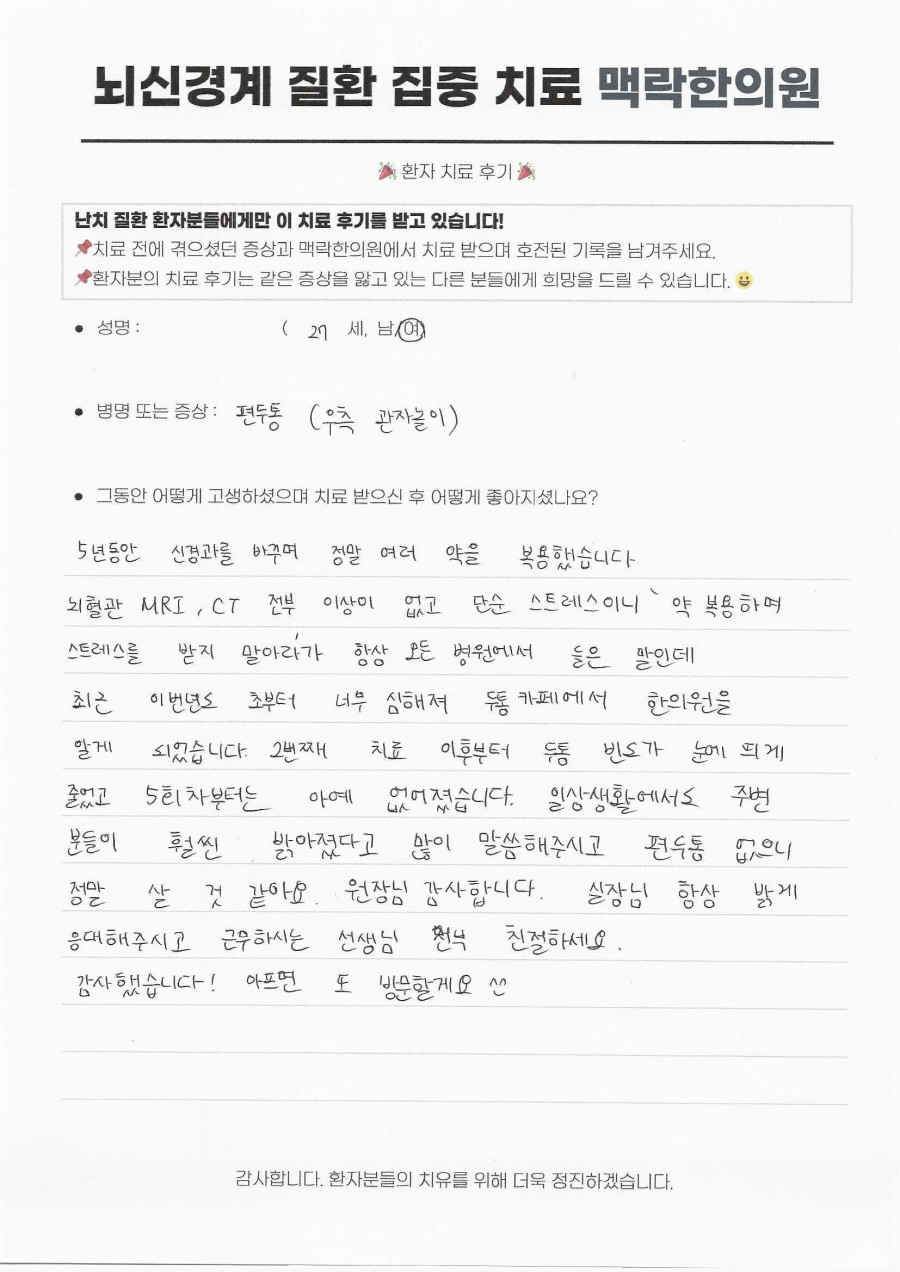 뇌신경계 질환 집중 치료 맥락한의원
🎉 환자 치료 후기 🎉
난치 질환 환자분들에게만 이 치료 후기를 받고 있습니다!
📌치료 전에 겪으셨던 증상과 맥락한의원에서 치료 받으며 호전된 기록을 남겨주세요.
📌환자분의 치료 후기는 같은 증상을 앓고 있는 다른 분들에게 희망을 드릴 수 있습니다. 😀
• 성명 : ( 27 세, 남/여)
• 병명 또는 증상 : 편두통 (우측 관자놀이)
• 그동안 어떻게 고생하셨으며 치료 받으신 후 어떻게 좋아지셨나요?
5년동안 신경과를 바꾸며 정말 여러 약을 복용했습니다
뇌혈관 MRI, CT 전부 이상이 없고 단순 스트레스이니 ` 약 복용하며
스트레스를 받지 말아라'가 항상 모든 병원에서 들은 말인데
최근 이번년도 초부터 너무 심해져 두통카페에서 한의원을
알게 되었습니다. 2번째 치료 이후부터 두통 빈도가 눈에 띄게
줄었고 5회차부터는 아예 없어졌습니다. 일상생활에서도 주변
분들이 훨씬 밝아졌다고 많이 말씀해주시고 편두통 없으니
정말 살 것 같아요. 원장님 감사합니다. 실장님 항상 밝게
응대해주시고 근무하시는 선생님 전부 친절하세요.
감사했습니다! 아프면 또 방문할게요 ^^
감사합니다. 환자분들의 치유를 위해 더욱 정진하겠습니다.